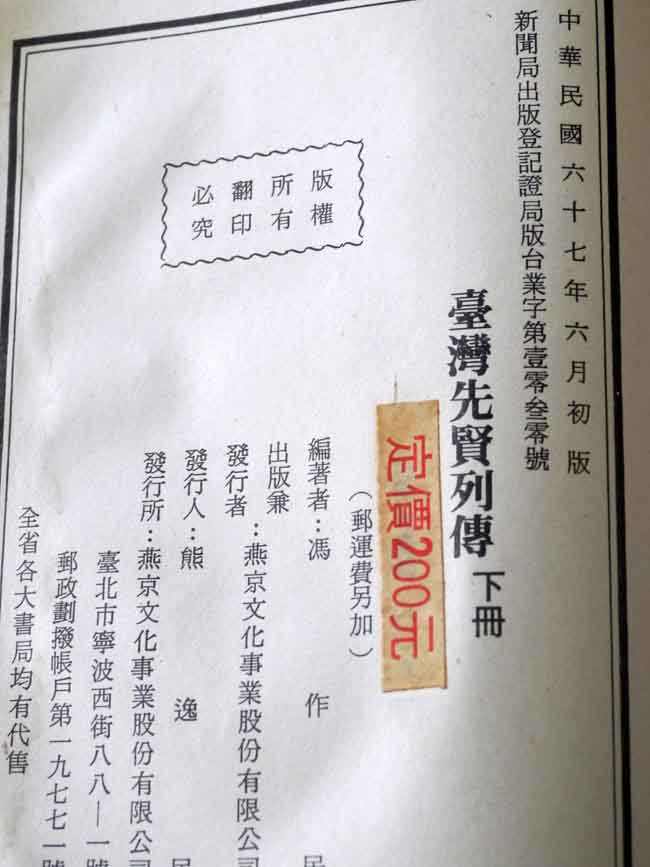 中華民國六十七年六月初版
新聞局出版登記證局版台業字第壹零叁零號
版權
所有
翻印
必究
臺灣先賢列傳 下冊
定價200元
（郵運費另加）
編著者：馮 作 民
出版兼
發行者：燕京文化事業股份有限公司
發行人：熊 逸 民
發行所：燕京文化事業股份有限公司
臺北市寧波西街八八—一號
郵政劃撥帳戶第一九七七一號
全省各大書局均有代售